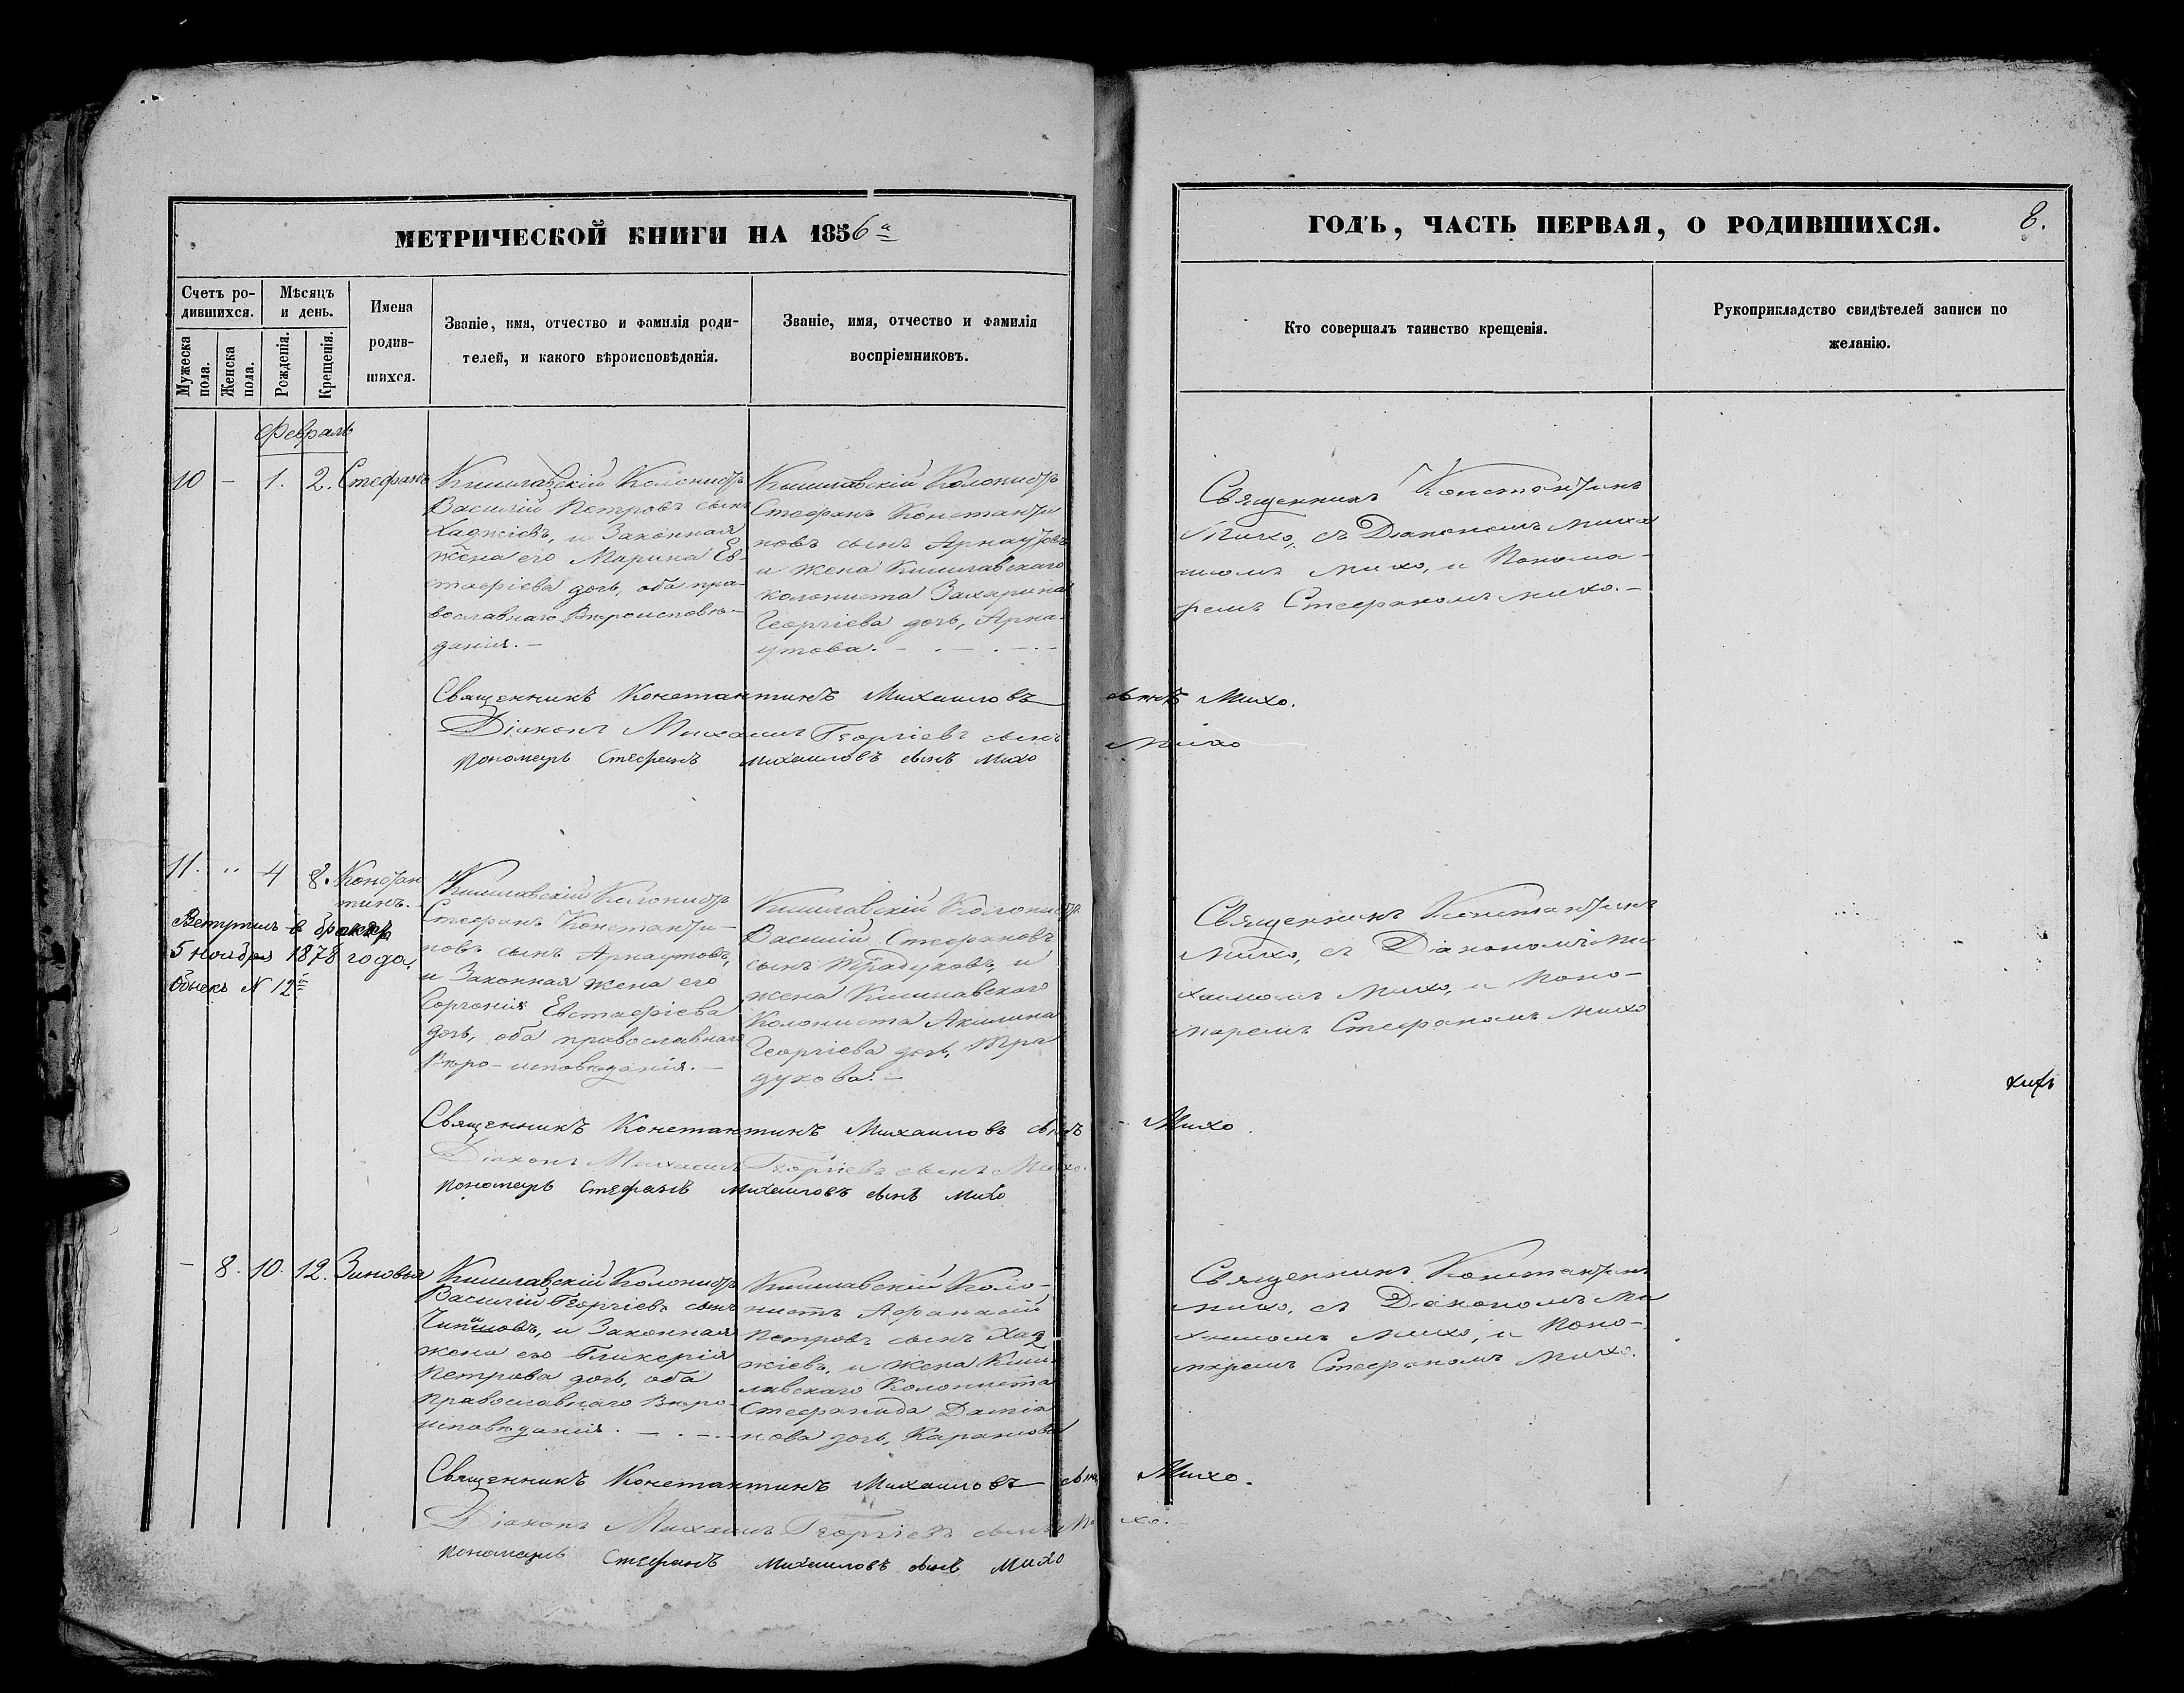 МЕТРИЧЕСКОЙ КНИГИ НА 1856ᵃ
ГОДЪ, ЧАСТЬ ПЕРВАЯ, О РОДИВШИХСЯ.
8.
Счетъ ро-
дившихся.
Мужеска
пола.
Женска
пола.
Мѣсяцъ
и день.
Рожденія.
Крещенія.
Имена
родив-
шихся.
Званіе, имя, отчество и фамилія роди-
телей, и какого вѣроисповѣданія.
Званіе, имя, отчество и фамилія
воспріемниковъ.
Кто совершалъ таинство крещенія.
Рукоприкладство свидѣтелей записи по
желанію.
Февраль
10 - 1. 2. Стефанъ
Кишлавскій Колонистъ
Василій Петровъ сынъ
Хаджіевъ, и Законная
жена его Марина Ев-
стафіева дочь, оба пра-
вославнаго Вѣроисповѣ-
данія. -
Кишлавскій Колонистъ
Стефанъ Константи
новъ сынъ Арнаутовъ
и жена Кишлавскаго
колониста Захарина
Георгіева дочь, Арна-
утова. -
Священникъ Константинъ
Михо, съ Діакономъ Миха
иломъ Михо, и Понома-
ремъ Стефаномъ Михо. -
Священникъ Константинъ Михаиловъ сынъ Михо.
Діаконъ Михаилъ Георгіевъ сынъ Михо
Пономарь Стефанъ Михаиловъ сынъ Михо
11. " 4 8. Констан
тинъ.
Вступилъ в бракъ
5 ноября 1878 года.
Обыскъ N 12й
Кишлавскій Колонистъ
Стефанъ Константи-
новъ сынъ Арнаутовъ,
и Законная жена его
Горгонія Евстафіева
дочь, оба православнаго
Вѣро-исповѣданія. -
Кишлавскій Колонистъ
Василій Стефановъ
сынъ Традуковъ, и
жена Кишлавскаго
Колониста Акилина
Георгіева дочь, Тра
дукова. -
Священникъ Константинъ
Михо, съ Діакономъ Ми
хаиломъ Михо, и Поно-
маремъ Стефаномъ Михо
Священникъ Константинъ Михаиловъ сынъ Михо
Діаконъ Михаилъ Георгіевъ сынъ Михо.
Пономарь Стефанъ Михаиловъ сынъ Михо
- 8. 10. 12. Зиновья
Кишлавскій Колонистъ
Василій Георгіевъ сынъ
и Законная
жена его Гликерія
Петрова дочь, оба
Православнаго Вѣро-
исповѣданія. -
Кишлавскій Коло-
нистъ Афанасій
Петровъ сынъ Хад
жіевъ, и жена Киш-
лавскаго Колониста
Стефанида Даміа
нова дочь,
Священникъ Константинъ
Михо, съ Діакономъ Ми
хаиломъ Михо, и Поно-
маремъ Стефаномъ Михо.
Священникъ Константинъ Михаиловъ сынъ Михо.
Діаконъ Михаилъ Георгіевъ сынъ Михо.
Пономарь Стефанъ Михаиловъ сынъ Михо